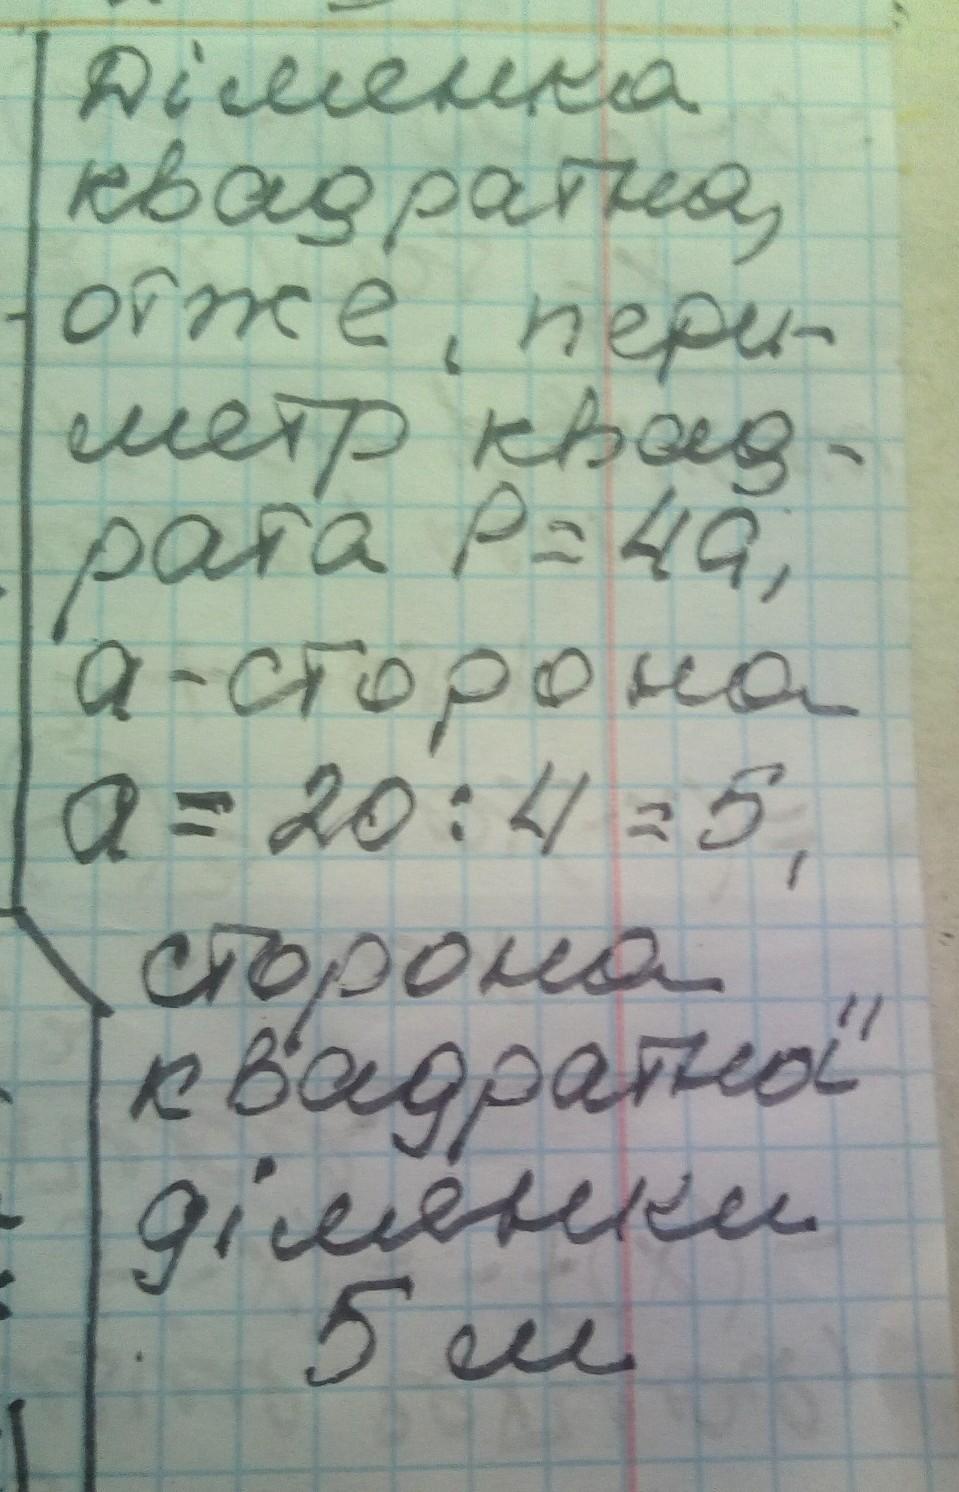 Ділянка
квадратна,
отже, пери-
метр квад-
рата P=4a,
a-сторона
a = 20 : 4 = 5,
сторона
квадратної
ділянки
5 м